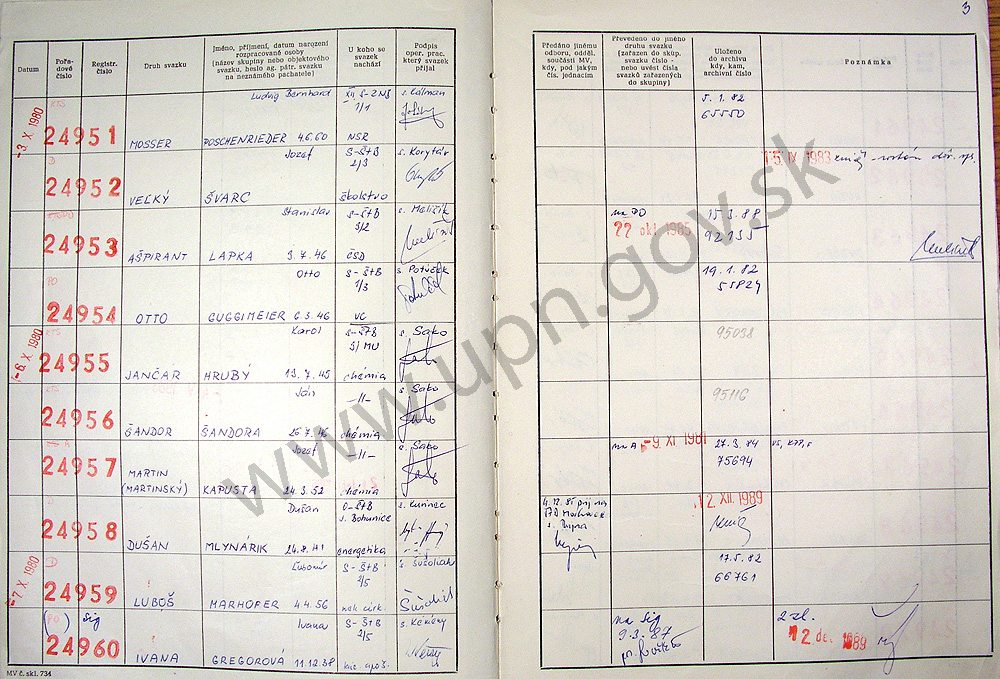 3
Datum
Pořa-
dové
číslo
Registr.
číslo
Druh svazku
Jméno, příjmení, datum narození
rozpracované osoby
(název skupiny nebo objektového
svazku, heslo ag. pátr. svazku
na neznámého pachatele)
U koho se
svazek
nachází
Podpis
oper. prac.
který svazek
přijal
Předáno jinému
odboru, odděl.
součásti MV,
kdy, pod jakým
čís. jednacím
Převedeno do jiného
druhu svazku
(zařazen do skup.
svazku číslo -
nebo uvést čísla
svazků zařazených
do skupiny)
Uloženo
do archivu
kdy, kam,
archivní číslo
Poznámka
-3. X. 1980
KTS
24951
MOSSER
Ludwig Bernhard
POSCHENRIEDER 4.6.60
XII. S-ZNB
1/1
NSR
s. Cálman
5. 1. 82
65550
D
24952
VEĽKÝ
Jozef
ŠVARC
S-ŠtB
2/3
školstvo
s. Korytár
15. IX. 1983
24953
AŠPIRANT
Stanislav
LAPKA 3.7.46
S-ŠtB
3/2
ČSD
s. Meličík
na PO
22. okt. 1985
15.3.88
92135
PO
24954
OTTO
Otto
GUGGIMEIER 6.3.46
S-ŠtB
1/3
VC
s. Potúček
19.1.82
55824
-6. X. 1980
KTS
24955
JANČAR
Karol
HRUBÝ 13.7.45
S-ŠtB
3/MU
chémia
s. Sako
95038
KTS
24956
ŠANDOR
Ján
ŠANDORA 26.7.46
-//-
chémia
s. Sako
95116
24957
MARTIN
(MARTINSKÝ)
Jozef
KAPUSTA 24.3.52
-//-
chémia
s. Sako
na A -9. XI. 1981
27.3.84
75694
24958
DUŠAN
Dušan
MLYNÁRIK 24.8.41
O-ŠtB
J. Bohunice
energetika
12. XII. 1989
-7. X. 1980
D
24959
LUBOŠ
Ľubomír
MARHOFER 4.4.56
S-ŠtB
2/5
s. Šušoliak
17.5.82
66761
(PO) Sig
24960
IVANA
Ivana
GREGOROVÁ 11.12.38
S-ŠtB
2/5
s. Kémény
na Sig
9.3.87
2 zl.
12. dec. 1989
MV č. skl. 734
www.upn.gov.sk